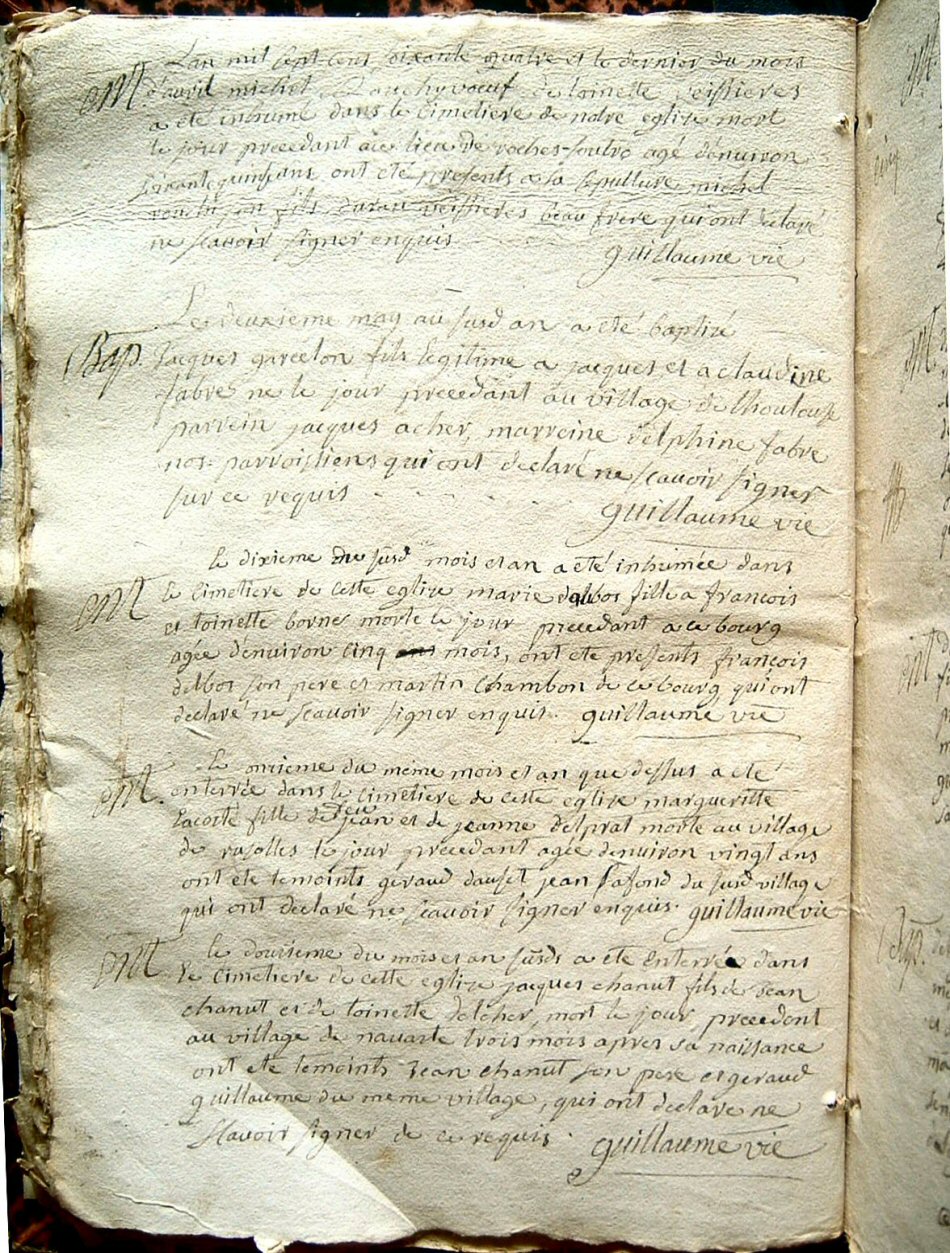 L'an mil sept cens soixante quatre et le dernier du mois
eMt. d'avril michel veuf de toinette veissieres
a été inhumé dans le cimetiere de notre eglize mort
le jour precedant au lieu de roches-soutro agé d'environ
soixante quinse ans ont été presents a la sepulture michel
son fils, durand veissieres beau frere qui ont declaré
ne scavoir signer enquis guillaume vie
Le deuxieme may au susd an a eté baptizé
Bap. jacques garcelon fils legitime a jacques et a claudine
fabre né le jour precedant au village de
parrein jacques acher, marreine delphine fabre
nos parroissiens qui ont declaré ne scavoir signer
sur ce requis guillaume vie
le dixieme du susd mois et an a été inhumée dans
eMt le cimetiere de cette eglize marie delbos fille a francois
et toinette borne morte le jour precedant a ce bourg
agée d'environ cinq mois, ont eté presents francois
delbos son pere et martin chambon de ce bourg qui ont
declaré ne scavoir signer enquis. guillaume vie
le onzieme du même mois et an que dessus a eté
eMt. enterrée dans le cimetiere de cette eglize margueritte
lacoste fille de feu jean et de jeanne delprat morte au village
de rusolles le jour precedant agée d'environ vingt ans
ont eté temoints geraud dauset jean lafond du susd village
qui ont declaré ne scavoir signer enquis. guillaume vie
eMt le douzieme du mois et an susds a eté enterré dans
le cimetiere de cette eglize jacques chanut fils de jean
chanut et de toinette delcher, mort le jour precedent
au village de navaste trois mois apres sa naissance
ont eté temoints jean chanut son pere et geraud
guillaume du meme village, qui ont declaré ne
scavoir signer de ce requis. guillaume vie